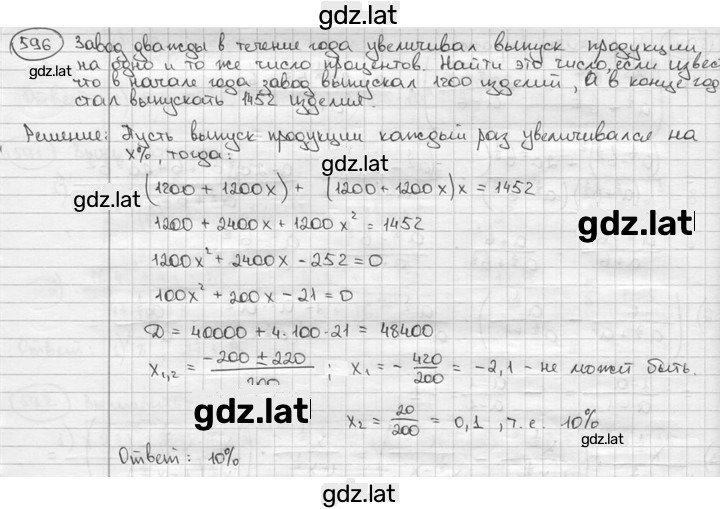 gdz.lat
596 Завод дважды в течение года увеличивал выпуск продукции
gdz.lat
на одно и то же число процентов. Найти это число, если извес
что в начале года завод выпускал 1200 изделий, а в конце год
стал выпускать 1452 изделия.
Решение: Пусть выпуск продукции каждый раз увеличивался на
x%, тогда:
gdz.lat
gdz.lat
(1200 + 1200x) + (1200 + 1200x)x = 1452
gdz.lat
1200 + 2400x + 1200x² = 1452
1200x² + 2400x - 252 = 0
100x² + 200x - 21 = 0
D = 40000 + 4·100·21 = 48400
x₁,₂ = (-200 ± 220)/200 ; x₁ = - 420/200 = -2,1 - не может быть.
gdz.lat
x₂ = 20/200 = 0,1, т.е. 10%
gdz.lat
Ответ: 10%
gdz.lat